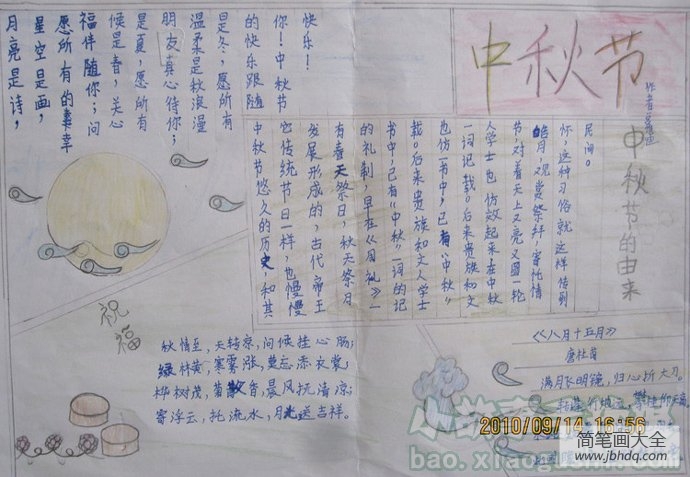 中秋节
作者
中秋节的由来
中秋节悠久的历史，和其
它传统节日一样，也慢慢
发展形成的，古代帝王
有春天祭日，秋天祭月
的礼制，早在《周礼》一
书中，已有“中秋”一词的记
载。后来贵族和文人学士
也仿一书中，已有“中秋”
一词记载。后来贵族和文
人学士也仿效起来在中秋
节，对着天上又亮又圆一轮
皓月，观赏祭拜，寄托情
怀，这种习俗就这样传到
民间。
月亮是诗，
星空是画，
愿所有的幸
福伴随你；问
候是春，关心
是夏，愿所有
朋友真心待你；
温柔是秋浪漫
是冬，愿所有
的快乐跟随
你！中秋节
快乐！
祝福
秋情至，天转凉，问候挂心肠；
绿林黄，寒雾涨，莫忘添衣裳；
桦树茂，菊散香，晨风抚清凉；
寄浮云，托流水，月光送吉祥。
《八月十五月》
唐杜甫
满月飞明镜，归心折大刀。
转蓬行地远，攀桂仰天高。
2010/09/14 16:56
简笔画大全
www.jbhdq.com